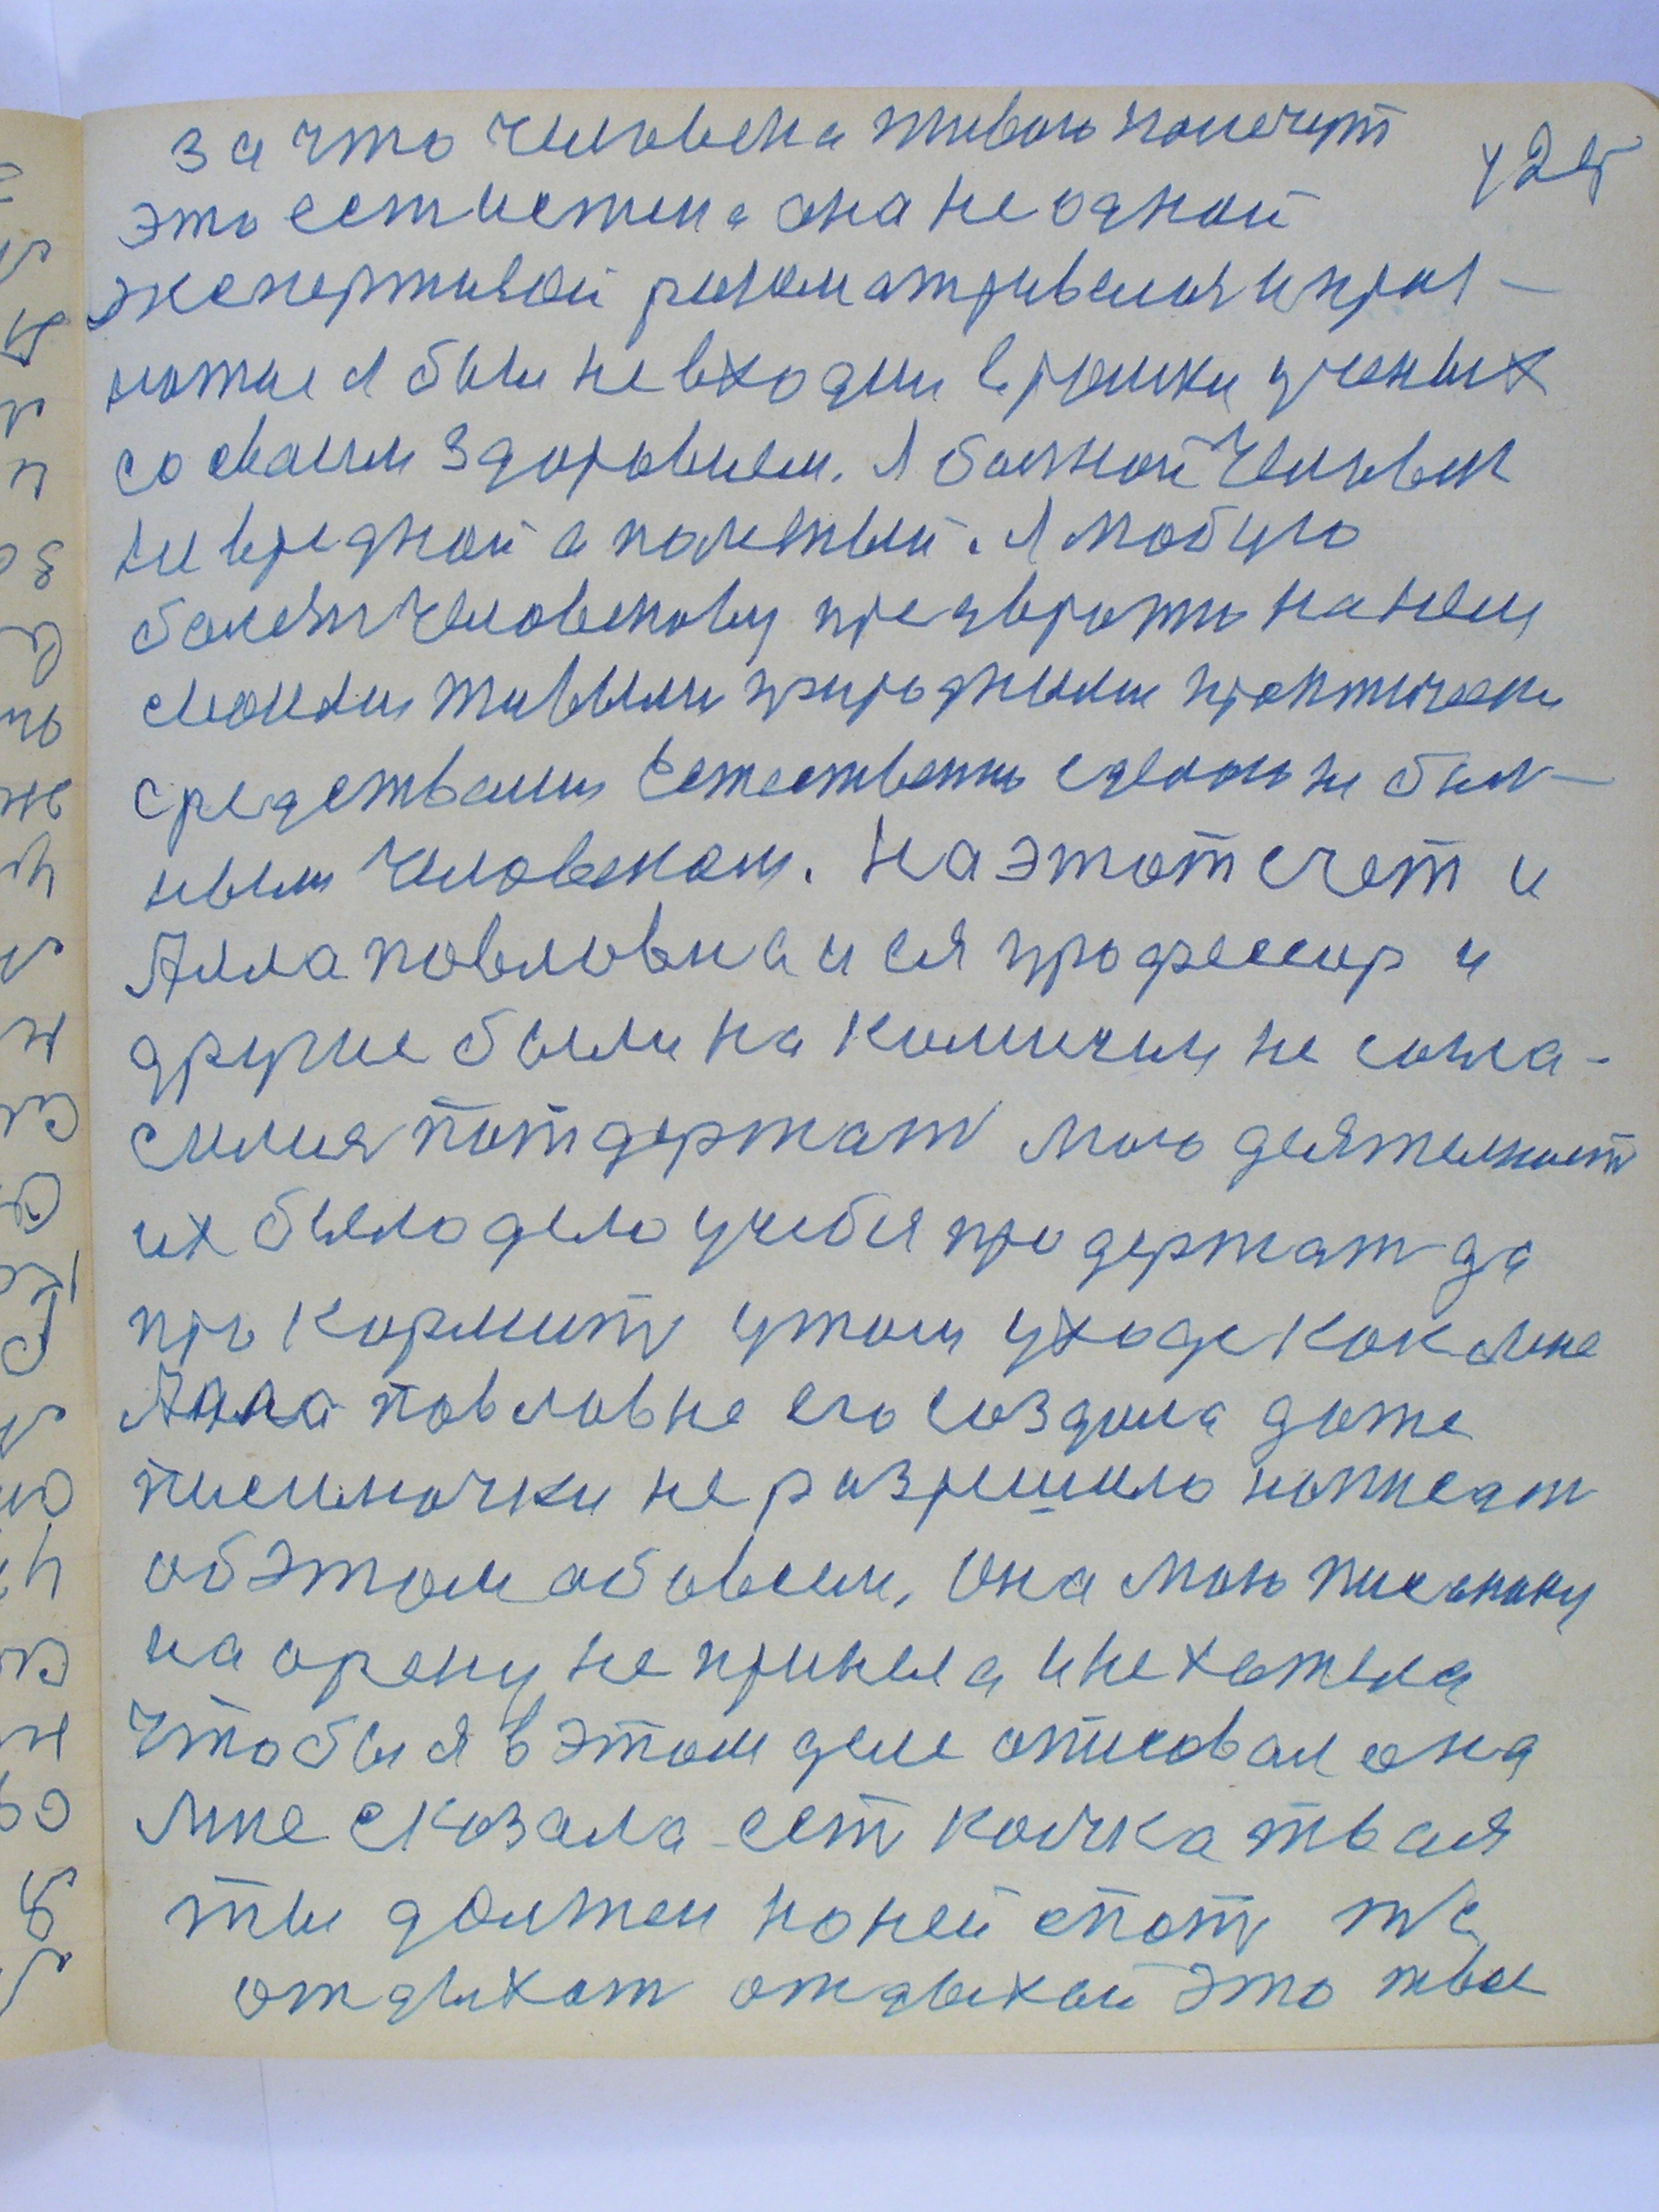 за что человека живого поменут
это ест истена она не одной
экспертизой расматривалоя и про
я был не входил в рамки ученых
со своим здоровием. Я болной человек
не вредной а полезный. Я моб
болезн человекову на нем
своими живыми природными практическими
средствами Естественно сделат не бол-
ным человеком. На этот счет и
Алла повловна и ея професиор и
другие были на не согла-
силися потдержат мою деятелност
их было дело учебы продержат да
прокормит утом уходе как мне
Алла повловне его создала даже
писимочки не разришила написат
об этом обовсем. Она мою писанину
на арену не приняла и не хотела
Чтобы я в этом деле описовал она
мне сказала ест койка твоя
ты должен на ней спат
отдыхат отдыхай это твое